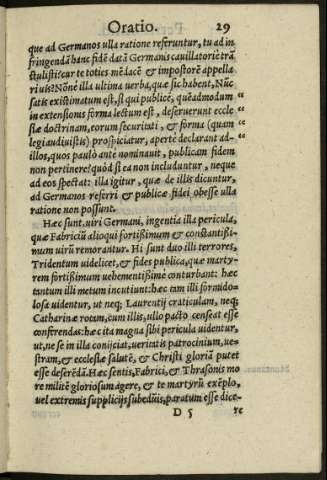 Oratio. 29
que ad Germanos ulla ratione referuntur, tu ad in
fringendā hanc fidē datā Germanis cauillatoriè trā
stulisti: cur te toties mēdacē & impostorē appella
ri uis? Nōnè illa ultima uerba, quæ sic habent, Nūc
satis existimatum est, si qui publicè, quēadmodum “
in extensionis forma lectum est, deseruerunt eccle “
siæ doctrinam, eorum securitati, & forma (quam “
legi audiuistis) prospiciatur, apertè declarant ad-
illos, quos paulò ante nominauit, publicam fidem
non pertinere? quòd si ea non includuntur, neque
ad eos spectat: illa igitur, quæ de illis dicuntur,
ad Germanos referri & publicæ fidei obesse ulla
ratione non possunt.
Hæc sunt, uiri Germani, ingentia illa pericula,
quæ Fabriciū alioqui fortißimum & constantißi-
mum uirū remorantur. Hi sunt duo illi terrores,
Tridentum uidelicet, & fides publica, quæ marty-
rem fortißimum uehementißimè conturbant: hæc
tantum illi metum incutiunt: hæc tam illi formido-
losa uidentur, ut neq; Laurentij craticulam, neq;
Catharinæ rotam, cum illis, ullo pacto censeat esse
conferendas: hæc ita magna sibi pericula uidentur,
ut, ne se in illa conijciat, ueritatis patrocinium, ue-
stram, & ecclesiæ salutē, & Christi gloriā putet
esse deserēdā. Hæc sentis, Fabrici, & Thrasonis mo
re milite gloriosum agere, & te martyrū exēplo,
uel extremis supplicijs subeūdis, paratum esse dice-
D 5 re